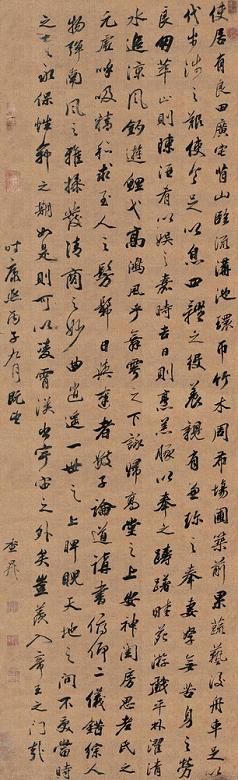 使居有良田廣宅背山臨流溝池環帀竹木周布場圃築前果蔬藝後舟車足以
代步涉之難使令足以息四體之役養親有兼珍之奉妻孥無苦身之勞
良朋萃止則陳酒肴以娛之嘉時吉日則烹羔豚以奉之躊躇畦苑游戲平林濯清
水追涼風釣遊鯉弋高鴻風乎舞雩之下詠歸高堂之上安神閨房思老氏之
元虛呼吸精和求至人之髣髴日與達者數子論道講書俯仰二儀錯綜人
物彈南風之雅操發清商之妙曲逍遙一世之上睥睨天地之間不受當時
之責永保性命之期如是則可以凌霄漢出宇宙之外矣豈羨入帝王之門哉
時康熙丙子九月既望
查昇